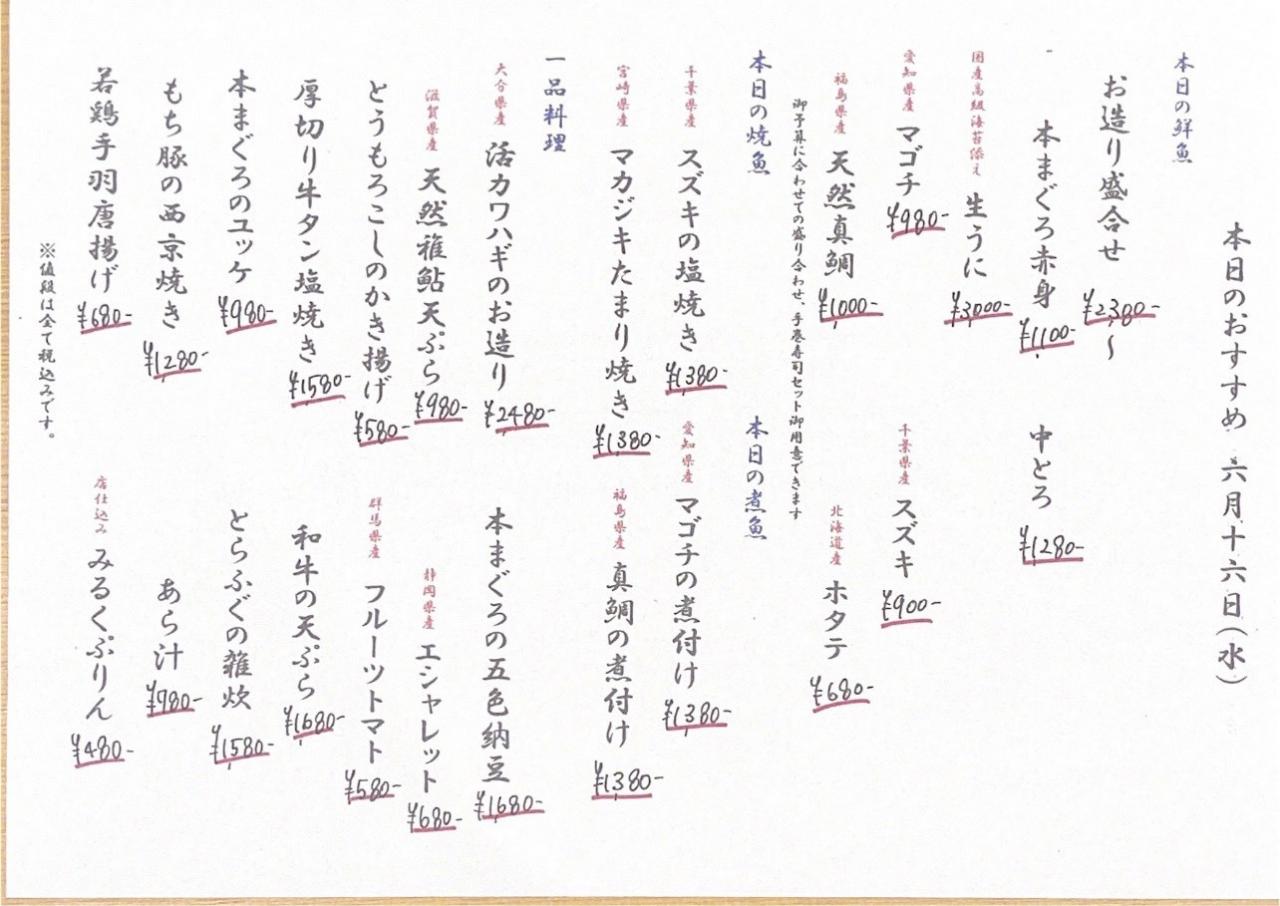 本日のおすすめ 六月十六日(水)
本日の鮮魚
お造り盛合せ ¥2,380-~
本まぐろ赤身 ¥1,100-
中とろ ¥1,280-
国産高級海苔添え 生うに ¥3,000-
愛知県産 マゴチ ¥980-
千葉県産 スズキ ¥900-
福島県産 天然真鯛 ¥1,000-
北海道産 ホタテ ¥680-
御予算に合わせての盛り合わせ、手巻寿司セット御用意できます
本日の焼魚
千葉県産 スズキの塩焼き ¥1,380-
宮崎県産 マカジキたまり焼き ¥1,380-
本日の煮魚
愛知県産 マゴチの煮付け ¥1,380-
福島県産 真鯛の煮付け ¥1,380-
一品料理
大分県産 活カワハギのお造り ¥2,480-
本まぐろの五色納豆 ¥1,680-
滋賀県産 天然稚鮎天ぷら ¥980-
静岡県産 エシャレット ¥680-
とうもろこしのかき揚げ ¥580-
群馬県産 フルーツトマト ¥580-
厚切り牛タン塩焼き ¥1,580-
和牛の天ぷら ¥1,680-
本まぐろのユッケ ¥980-
とらふぐの雑炊 ¥1,580-
もち豚の西京焼き ¥1,280-
あら汁 ¥980-
若鶏手羽唐揚げ ¥680-
店仕込み みるくぷりん ¥480-
※値段は全て税込みです。